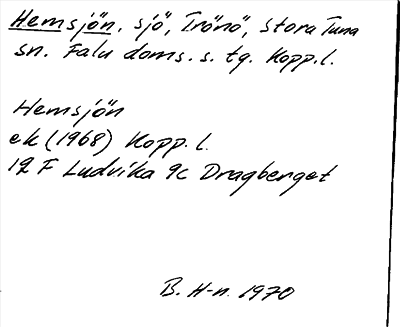 Hemsjön. sjö, Trönö, Stora Tuna
sn. Falu doms. s. tg. Kopp. l.
Hemsjön
ek (1968) Kopp. l.
12 F Ludvika 9c Dragberget
B. H-n. 1970